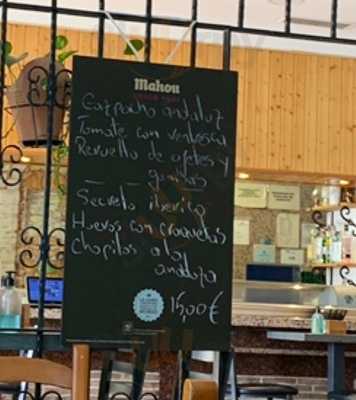 Mahou
Gazpacho andaluz
Tomate con ventresca
Revuelto de ajetes y
gambas
Secreto iberico
Huevos con croquetas
Chopitos a la
andaluza
15,00€